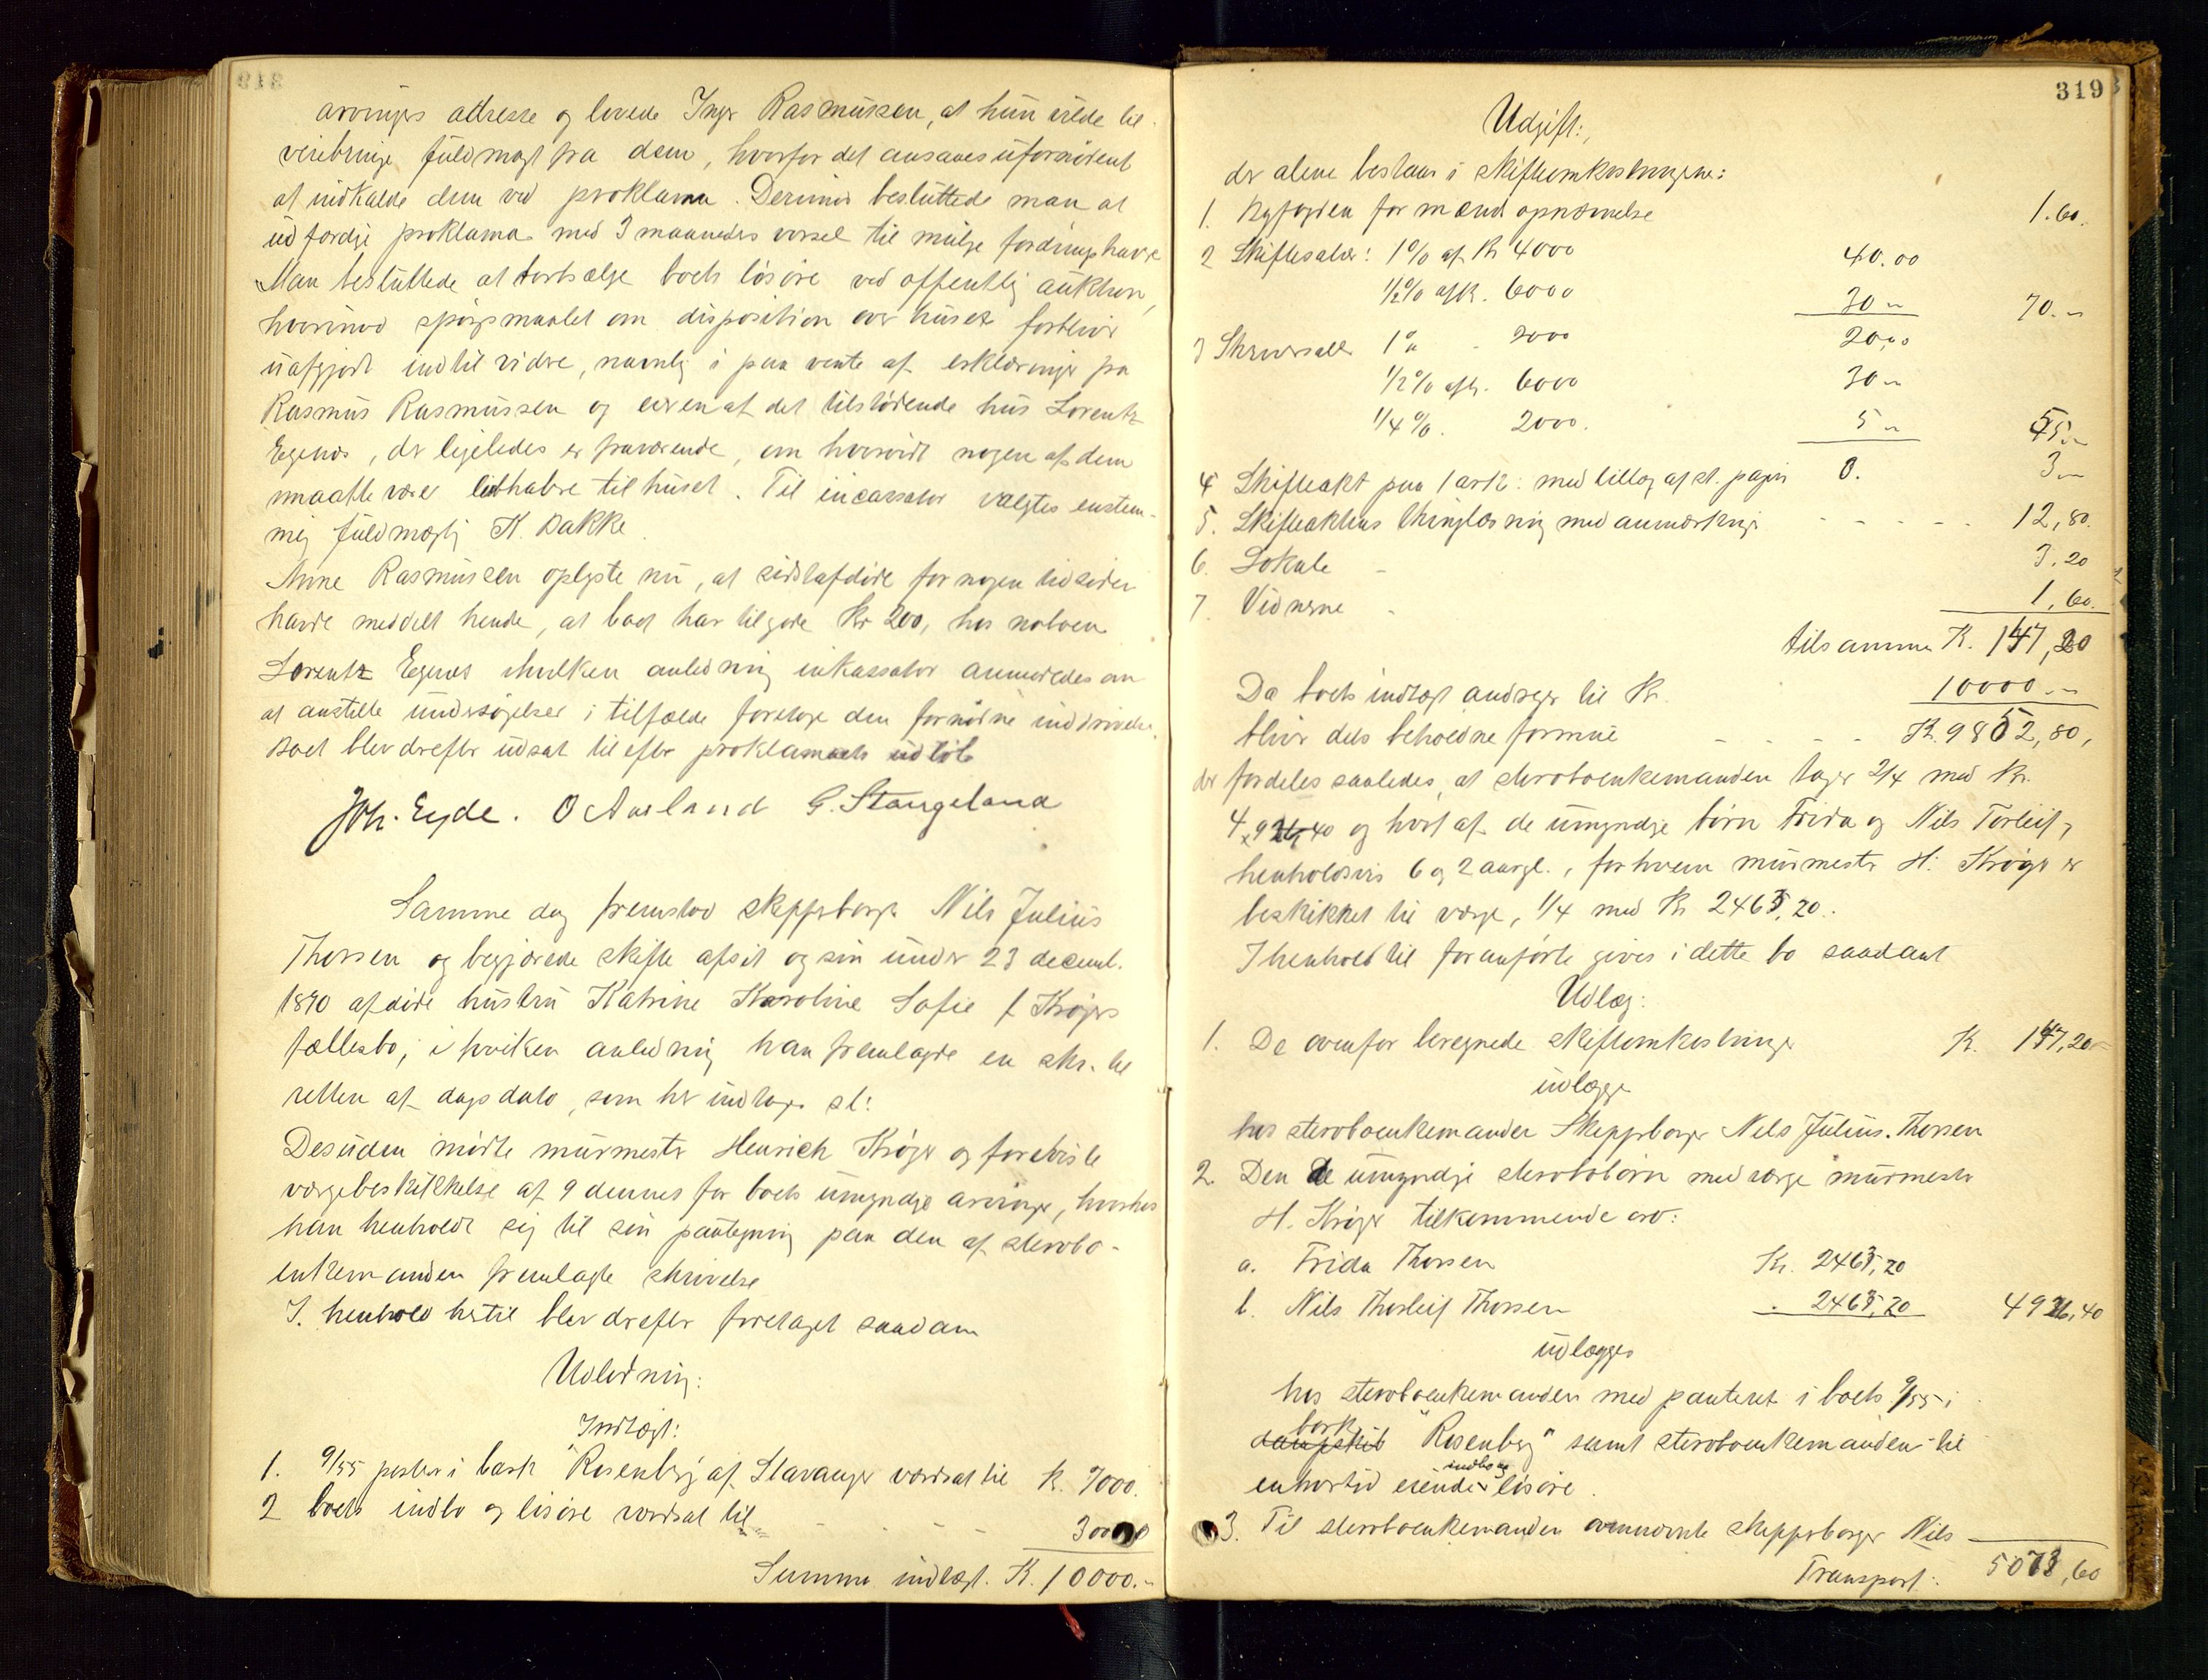 arvingers adresse og lovede Inger Rasmussen, at hun vilde til
veiebringe fuldmagt fra dem, hvorfor det ansaaes ufornødent
at indkalde dem ved proklama. Derimod besluttede man at
udfærdige proklama med 3 maaneders varsel til mulige fordringshavere
Man besluttede at bortsælge boets løsøre ved offentlig auktion,
hvorimod spørgsmaalet om disposition over huset forblir
uafgjort indtil videre, navnlig i paa vente af erklæringer fra
Rasmus Rasmussen og eieren af det tilstødende hus Lorentz
Egenæs, der ligeledes er fraværende, om hvorvidt nogen af dem
maatte være liebhabere til huset. Til incassator valgtes enstem-
mig fuldmægtig K. Bakke
Anne Rasmussen oplyste nu, at sidstafdøde for nogen tid siden
havde meddelt hende, at boet har tilgode Kr 200, hos naboen
Lorentz Egenæs i hvilken anledning inkassator anmodedes om
at anstille undersøgelser i tilfælde foretage den fornødne inddrivelse.
Boet blev derefter udsat til efter proklamaets udløb
Joh. Eyde. O Aasland G. Stangeland
Samme dag fremstod skipsborger Nils Julius
Thorsen og begjærede skifte af sit og sin under 23 decemb.
1890 afdøde hustru Katrine Karoline Sofie f Krøgers
fællesbo, i hvilken anledning han fremlagde en skr. til
retten af dags dato, som her indtages sl:
Desuden mødte murmester Henrich Krøger og foreviste
værgebeskikkelse af 9 dennes for boets umyndige arvinger, hvorhos
han henholdt sig til sin paategning paa den af stervbo-
enkemanden fremlagte skrivelse
I henhold hertil blev derefter foretaget saadan
Udlodning:
Indtægt:
1. 9/55 parter i bark "Rosenberg af Stavanger værdsat til K. 7000.
2 boets indbo og løsøre værdsat til - - - - 3000
Summa indtægt. K. 10000.-
319
Udgift:
der alene bestaar i skifteomkostningerne:
1. Byfogden for mænds opnævnelse 1.60.
2 Skiftesalær: 1% af Kr 4000 40.00
1/2% af K. 6000 30 - 70.-
3 Skriversalær 1% - 2000 20,00
1/2% af K. 6000 30 -
1/4%. 2000. 5 - 55.-
4 Skifteakt paa 1 ark: med tillæg af st. papir O. 3 -
5. Skifteaktens thinglæsning med anmærkning - - - - - 12,80.
6. Lokale - 3.20
7. Vidnerne - 1,60.
tilsammen K. 147,20
Da boets indtægt andrager til Kr. 10000.-
bliver dets beholdne formue - - - - K. 9852,80,
der fordeles saaledes, at stervboenkemanden tager 2/4 med Kr.
4,926,40 og hver af de umyndige børn Frida og Nils Torleif,
henholdsvis 6 og 2 aar gl., for hvem murmester H. Krøger er
beskikket til værge, 1/4 med Kr 2463,20.
I henhold til foranførte gives i dette bo saadant
Udlæg:
1. De ovenfor beregnede skifteomkostninger K. 147,20
udlægges
hos stervboenkemanden Skippsborger Nils Julius Thorsen
2. Den de umyndige stervbobørn med værge murmester
H. Krøger tilkommende arv:
a. Frida Thorsen Kr. 2463,20
b. Nils Thorleif Thorsen - 2463,20 4926,40
udlægges
hos stervboenkemanden med panteret i boets 9/55 i
bark
dampskib "Rosenberg" samt stervboenkemanden til
indbo og
enhver tid eiende løsøre.
3. Til stervboenkemanden ovennævnte skippsborger Nils
Transport: 5073,60